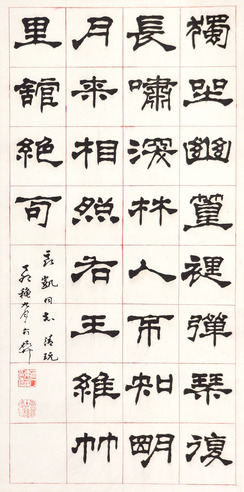 獨坐幽篁裡彈琴復
長嘯深林人不知明
月来相照右王維竹
里館絕句
同志清玩